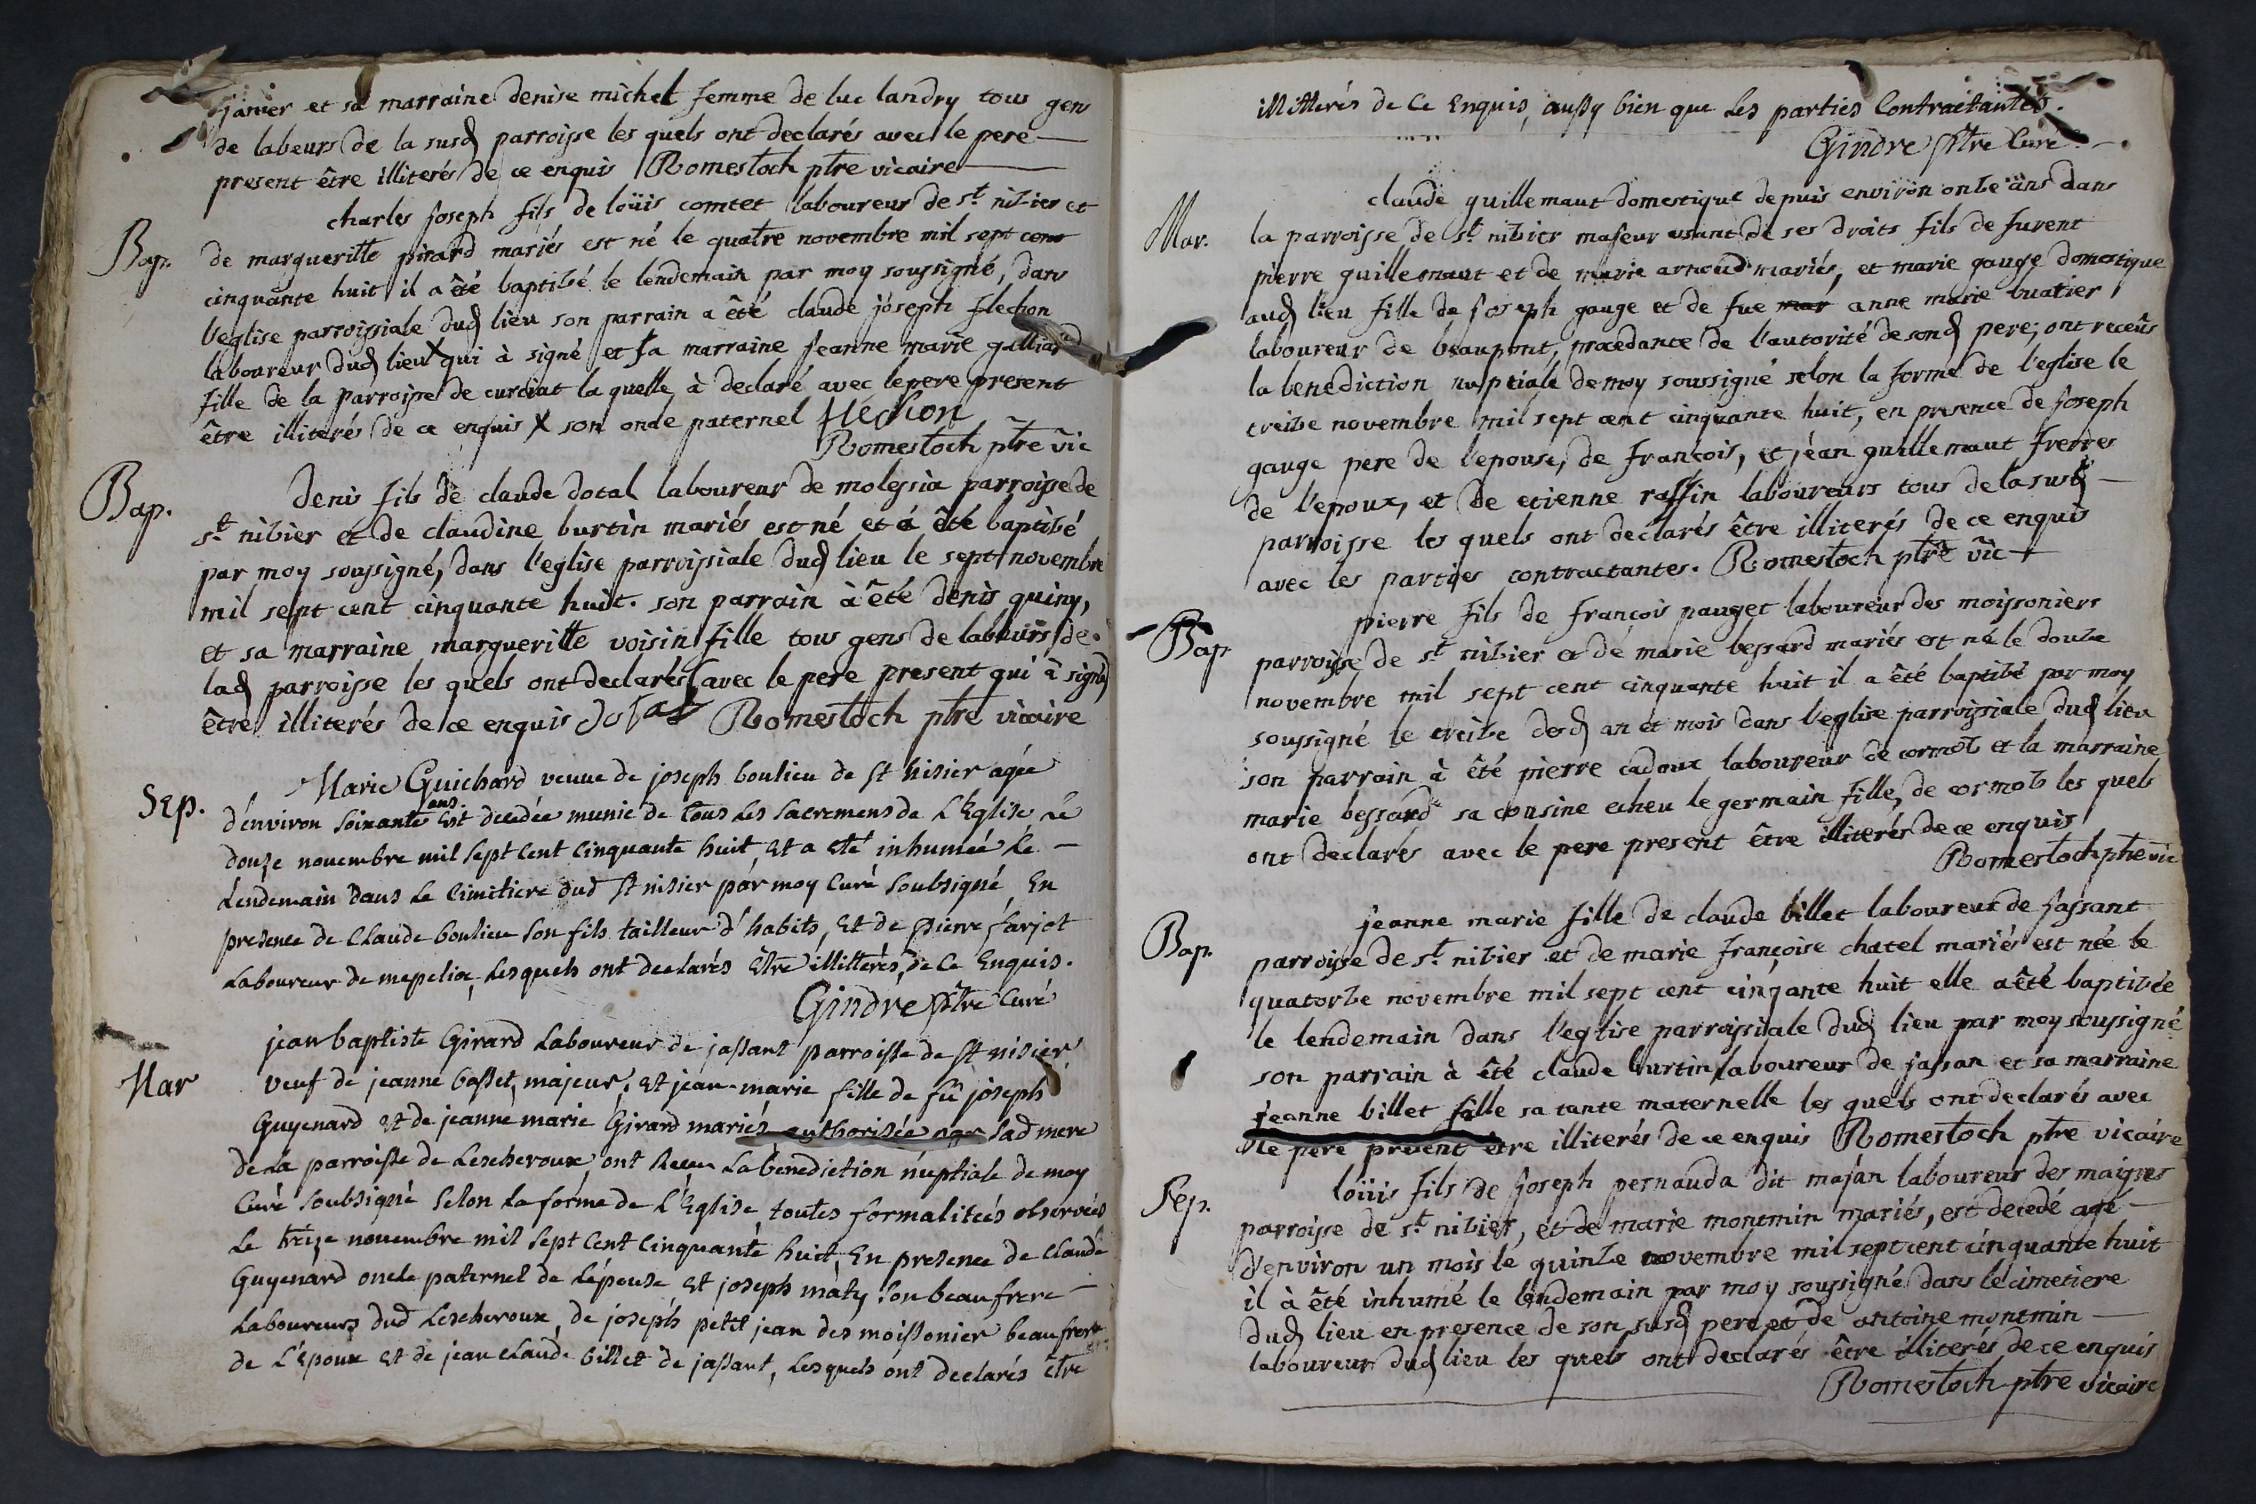 janier et sa marraine denise michel femme de luc landry tous gens
de labeurs de la susd parroisse les quels ont declarés avec le pere
present être illiterés de ce enquis Romestoch ptre vicaire
charles joseph fils de loüis comtet laboureur de st nizier et
Bap. de margueritte pirard mariés est né le quatre novembre mil sept cent
cinquante huit il a été baptizé le lendemain par moy soussigné, dans
l'eglise parroissiale dud lieu son parrain a été claude joseph flechon
laboureur dud lieu X qui à signé et sa marraine jeanne marie galliard
fille de la parroisse de curciat la quelle à declaré avec le pere present
être illiterés de ce enquis X son oncle paternel fléchon
Romestoch ptre vic
Bap. denis fils de claude dotal laboureur de molessia parroisse de
st nizier et de claudine burtin mariés est né et à été baptizé
par moy soussigné, dans l'eglise parroissiale dud lieu le sept novembre
mil sept cent cinquante huit. son parrain à été denis quiny,
et sa marraine marguerille voisin fille tous gens de labeurs de
lad parroisse les quels ont declarés (avec le pere present qui à signé)
être illiterés de ce enquis dotal Romestoch ptre vicaire
Marie Guichard veuue de joseph boulieu de st nisier agée
Sep. d'environ soixante ans est decedée munie de tous les sacremens de L'Eglise le
douze novembre mil sept cent cinquante huit, et a eté inhumée le
Lendemain dans le cimitiere dud st nisier par moy curé soubsigné, En
presence de claude boulieu son fils tailleur d'habits, et de pierre farjot
Laboureur de mepelia, lesquels ont declarés Etre illitterés de ce Enquis.
Gindre ptre Curé
jean baptiste Girard Laboureur de jassant parroisse de st nisier
Mar veuf de jeanne basset, majeur, et jean-marie fille de fû joseph
Guyenard et de jeanne marie Girard mariés authorisée par sad mere
de la parroisse de Lescheroux, ont receu La benediction nuptiale de moy
Curé soubsigné selon la forme de L'Eglise, toutes formalitées observées
Le treize novembre mil sept cent cinquante huit, En presence de claude
Guyenard oncle paternel de L'épouse, et joseph maty son beaufrere
Laboureurs dud Lescheroux, de joseph petit jean des moissonier beaufrere
de L'epoux et de jean claude billet de jassant, Lesquels ont declarés être
illitterés de ce Enquis, aussy bien que les parties Contractantes.
Gindre ptre Curé
claude guillemaut domestique depuis environ onze ans dans
Mar. la parroisse de st nizier majeur usant de ses droits fils de furent
pierre guillemaut et de marie arnoud mariés, et marie gauge domestique
aud lieu fille de joseph gauge et de fue mar anne marie buatier
laboureur de beaupont, procedante de l'autorité de sond pere; ont receüs
la benediction nuptiale de moy soussigné selon la forme de l'eglise le
treize novembre mil sept cent cinquante huit, en presence de joseph
gauge pere de l'epouse, de françois, et jéan guillemaut frerres
de l'epoux, et de etienne raffin laboureurs tous de la susd
parroisse les quels ont declarés être illiterés de ce enquis
avec les parties contractantes. Romestoch ptre vic
pierre fils de françois pauget laboureur des moissoniers
Bap parroisse de st nizier et de marie bessard mariés est né le douze
novembre mil sept cent cinquante huit il a été baptizé par moy
soussigné le treize desd an et mois dans l'eglise parroissiale dud lieu
son parrain à été pierre cadoux laboureur de cormoz et la marraine
marie bessard sa cousine germain fille, de cormoz les quels
ont declarés avec le pere present être illiterés de ce enquis
Romestoch ptre vic
jeanne marie fille de claude billet laboureur de jassant
Bap. parroisse de st nizier et de marie françoise chatel mariés est née le
quatorze novembre mil sept cent cinqante huit elle a été baptizée
le lendemain dans l'eglise parroissiale dud lieu par moy soussigné
son parrain à été claude burtin laboureur de jassan et sa marraine
jeanne billet fille sa tante maternelle les quels ont declarés avec
le pere present être illiterés de ce enquis Romestoch ptre vicaire
loüis fils de joseph pernauda dit majan laboureur des maigres
Sep. parroisse de st nizier, et de marie montmin mariés, est decedé agé
d'environ un mois le quinze novembre mil sept cent cinquante huit
il à été inhumé le lendemain par moy soussigné dans le cimetiere
dud lieu en presence de son susd pere et de antoine montmin
laboureur dud lieu les quels ont declarés être illiterés de ce enquis
Romestoch ptre vicaire